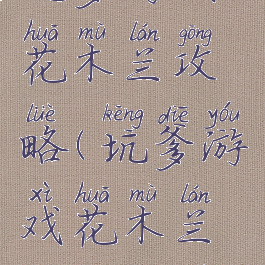 huā mù lán gōng
花木兰攻
lüè kēng diē yóu
略(坑爹游
xì huā mù lán
戏花木兰